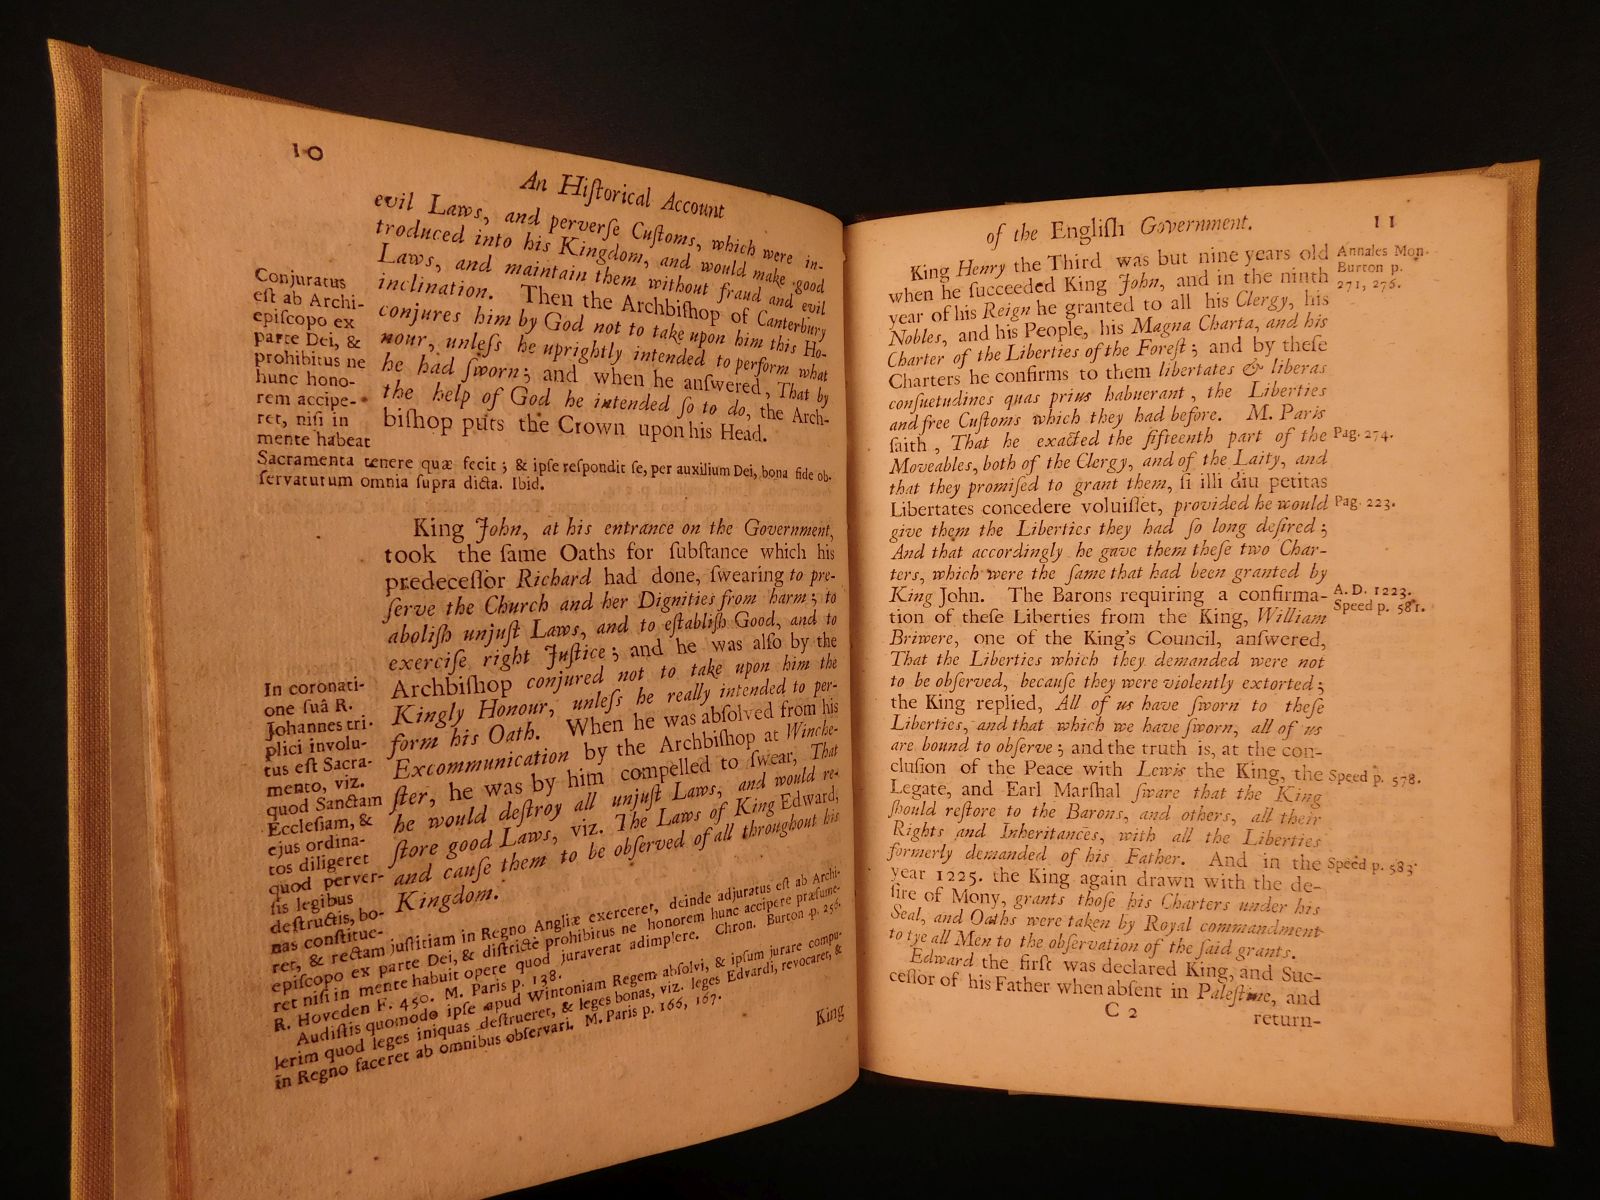 10
An Hiſtorical Account
evil Laws, and perverſe Cuſtoms, which were in-
troduced into his Kingdom, and would make good
Laws, and maintain them without fraud and evil
inclination. Then the Archbiſhop of Canterbury
conjures him by God not to take upon him this Ho-
nour, unleſs he uprightly intended to perform what
he had ſworn; and when he anſwered, That by
the help of God he intended ſo to do, the Arch-
biſhop puts the Crown upon his Head.
Conjuratus
eſt ab Archi-
epiſcopo ex
parte Dei, &
prohibitus ne
hunc hono-
rem accipe-
ret, niſi in
mente habeat
Sacramenta tenere quæ fecit; & ipſe reſpondit ſe, per auxilium Dei, bona fide ob-
ſervaturum omnia ſupra dicta. Ibid.
King John, at his entrance on the Government,
took the ſame Oaths for ſubſtance which his
predeceſſor Richard had done, ſwearing to pre-
ſerve the Church and her Dignities from harm; to
aboliſh unjuſt Laws, and to eſtabliſh Good, and to
exerciſe right Juſtice; and he was alſo by the
Archbiſhop conjured not to take upon him the
Kingly Honour, unleſs he really intended to per-
form his Oath. When he was abſolved from his
Excommunication by the Archbiſhop at Winche-
ſter, he was by him compelled to ſwear, That
he would deſtroy all unjuſt Laws, and would re-
ſtore good Laws, viz. The Laws of King Edward,
and cauſe them to be obſerved of all throughout his
Kingdom.
In coronati-
one ſuâ R.
Johannes tri-
plici involu-
tus eſt Sacra-
mento, viz.
quod Sanctam
Eccleſiam, &
ejus ordina-
tos diligeret
quod perver-
ſis legibus
deſtructis, bo-
nas conſtitue-
ret, & rectam juſtitiam in Regno Angliæ exerceret, deinde adjuratus eſt ab Archi-
epiſcopo ex parte Dei, & diſtrictè prohibitus ne honorem hunc accipere præſume-
ret niſi in mente habuit opere quod juraverat adimplere. Chron. Burton p. 256.
R. Hoveden F. 450. M. Paris p. 138.
Audiſtis quomodo ipſe apud Wintoniam Regem abſolvi, & ipſum jurare compu-
lerim quod leges iniquas deſtrueret, & leges bonas, viz. leges Edvardi, revocaret, &
in Regno faceret ab omnibus obſervari. M. Paris p. 166, 167.
King
of the Engliſh Government.
11
King Henry the Third was but nine years old
when he ſucceeded King John, and in the ninth
year of his Reign he granted to all his Clergy, his
Nobles, and his People, his Magna Charta, and his
Charter of the Liberties of the Foreſt; and by theſe
Charters he confirms to them libertates & liberas
conſuetudines quas prius habuerant, the Liberties
and free Cuſtoms which they had before. M. Paris
ſaith, That he exacted the fifteenth part of the
Moveables, both of the Clergy, and of the Laity, and
that they promiſed to grant them, ſi illi diu petitas
Libertates concedere voluiſſet, provided he would
give them the Liberties they had ſo long deſired;
And that accordingly he gave them theſe two Char-
ters, which were the ſame that had been granted by
King John. The Barons requiring a confirma-
tion of theſe Liberties from the King, William
Briwere, one of the King's Council, anſwered,
That the Liberties which they demanded were not
to be obſerved, becauſe they were violently extorted;
the King replied, All of us have ſworn to theſe
Liberties, and that which we have ſworn, all of us
are bound to obſerve; and the truth is, at the con-
cluſion of the Peace with Lewis the King, the
Legate, and Earl Marſhal ſware that the King
ſhould reſtore to the Barons, and others, all their
Rights and Inheritances, with all the Liberties
formerly demanded of his Father. And in the
year 1225. the King again drawn with the de-
ſire of Mony, grants thoſe his Charters under his
Seal, and Oaths were taken by Royal commandment
to tye all Men to the obſervation of the ſaid grants.
Edward the firſt was declared King, and Suc-
ceſſor of his Father when abſent in Paleſtine, and
C 2
return-
Annales Mon.
Burton p.
271, 276.
Pag. 274.
Pag. 223.
A. D. 1223.
Speed p. 581.
Speed p. 578.
Speed p. 583.